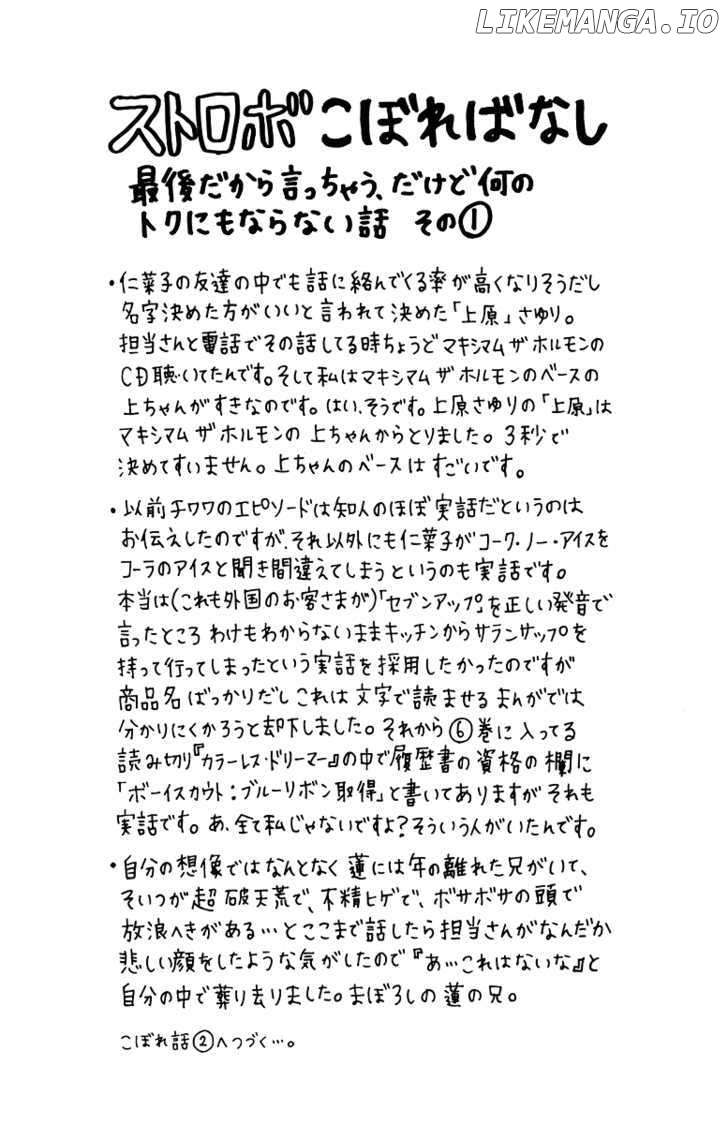 LIKEMANGA.IO
ストロボこぼればなし
最後だから言っちゃう、だけど何の
トクにもならない話 その①
・仁菜子の友達の中でも話に絡んでくる率が高くなりそうだし
名字決めた方がいいと言われて決めた「上原」さゆり。
担当さんと電話でその話してる時ちょうどマキシマム ザ ホルモンの
CD聴いてたんです。そして私はマキシマム ザ ホルモンのベースの
上ちゃんがすきなのです。はい、そうです。上原さゆりの「上原」は
マキシマム ザ ホルモンの上ちゃんからとりました。3秒で
決めてすいません。上ちゃんのベースはすごいです。
・以前チワワのエピソードは知人のほぼ実話だというのは
お伝えしたのですが、それ以外にも仁菜子がコーク・ノー・アイスを
コーラのアイスと聞き間違えてしまうというのも実話です。
本当は(これも外国のお客さまが)「セブンアップ」を正しい発音で
言ったところ わけもわからないままキッチンからサランサップを
持って行ってしまったという実話を採用したかったのですが
商品名ばっかりだしこれは文字で読ませるまんがでは
分かりにくかろうと却下しました。それから⑥巻に入ってる
読み切り『カラーレス・ドリーマー』の中で履歴書の資格の欄に
「ボーイスカウト:ブルーリボン取得」と書いてありますがそれも
実話です。あ、全て私じゃないですよ?そういう人がいたんです。
・自分の想像ではなんとなく蓮には年の離れた兄がいて、
そいつが超破天荒で、不精ヒゲで、ボサボサの頭で
放浪へきがある…とここまで話したら担当さんがなんだか
悲しい顔をしたような気がしたので『あ…これはないな』と
自分の中で葬り去りました。まぼろしの蓮の兄。
こぼれ話②へつづく…。